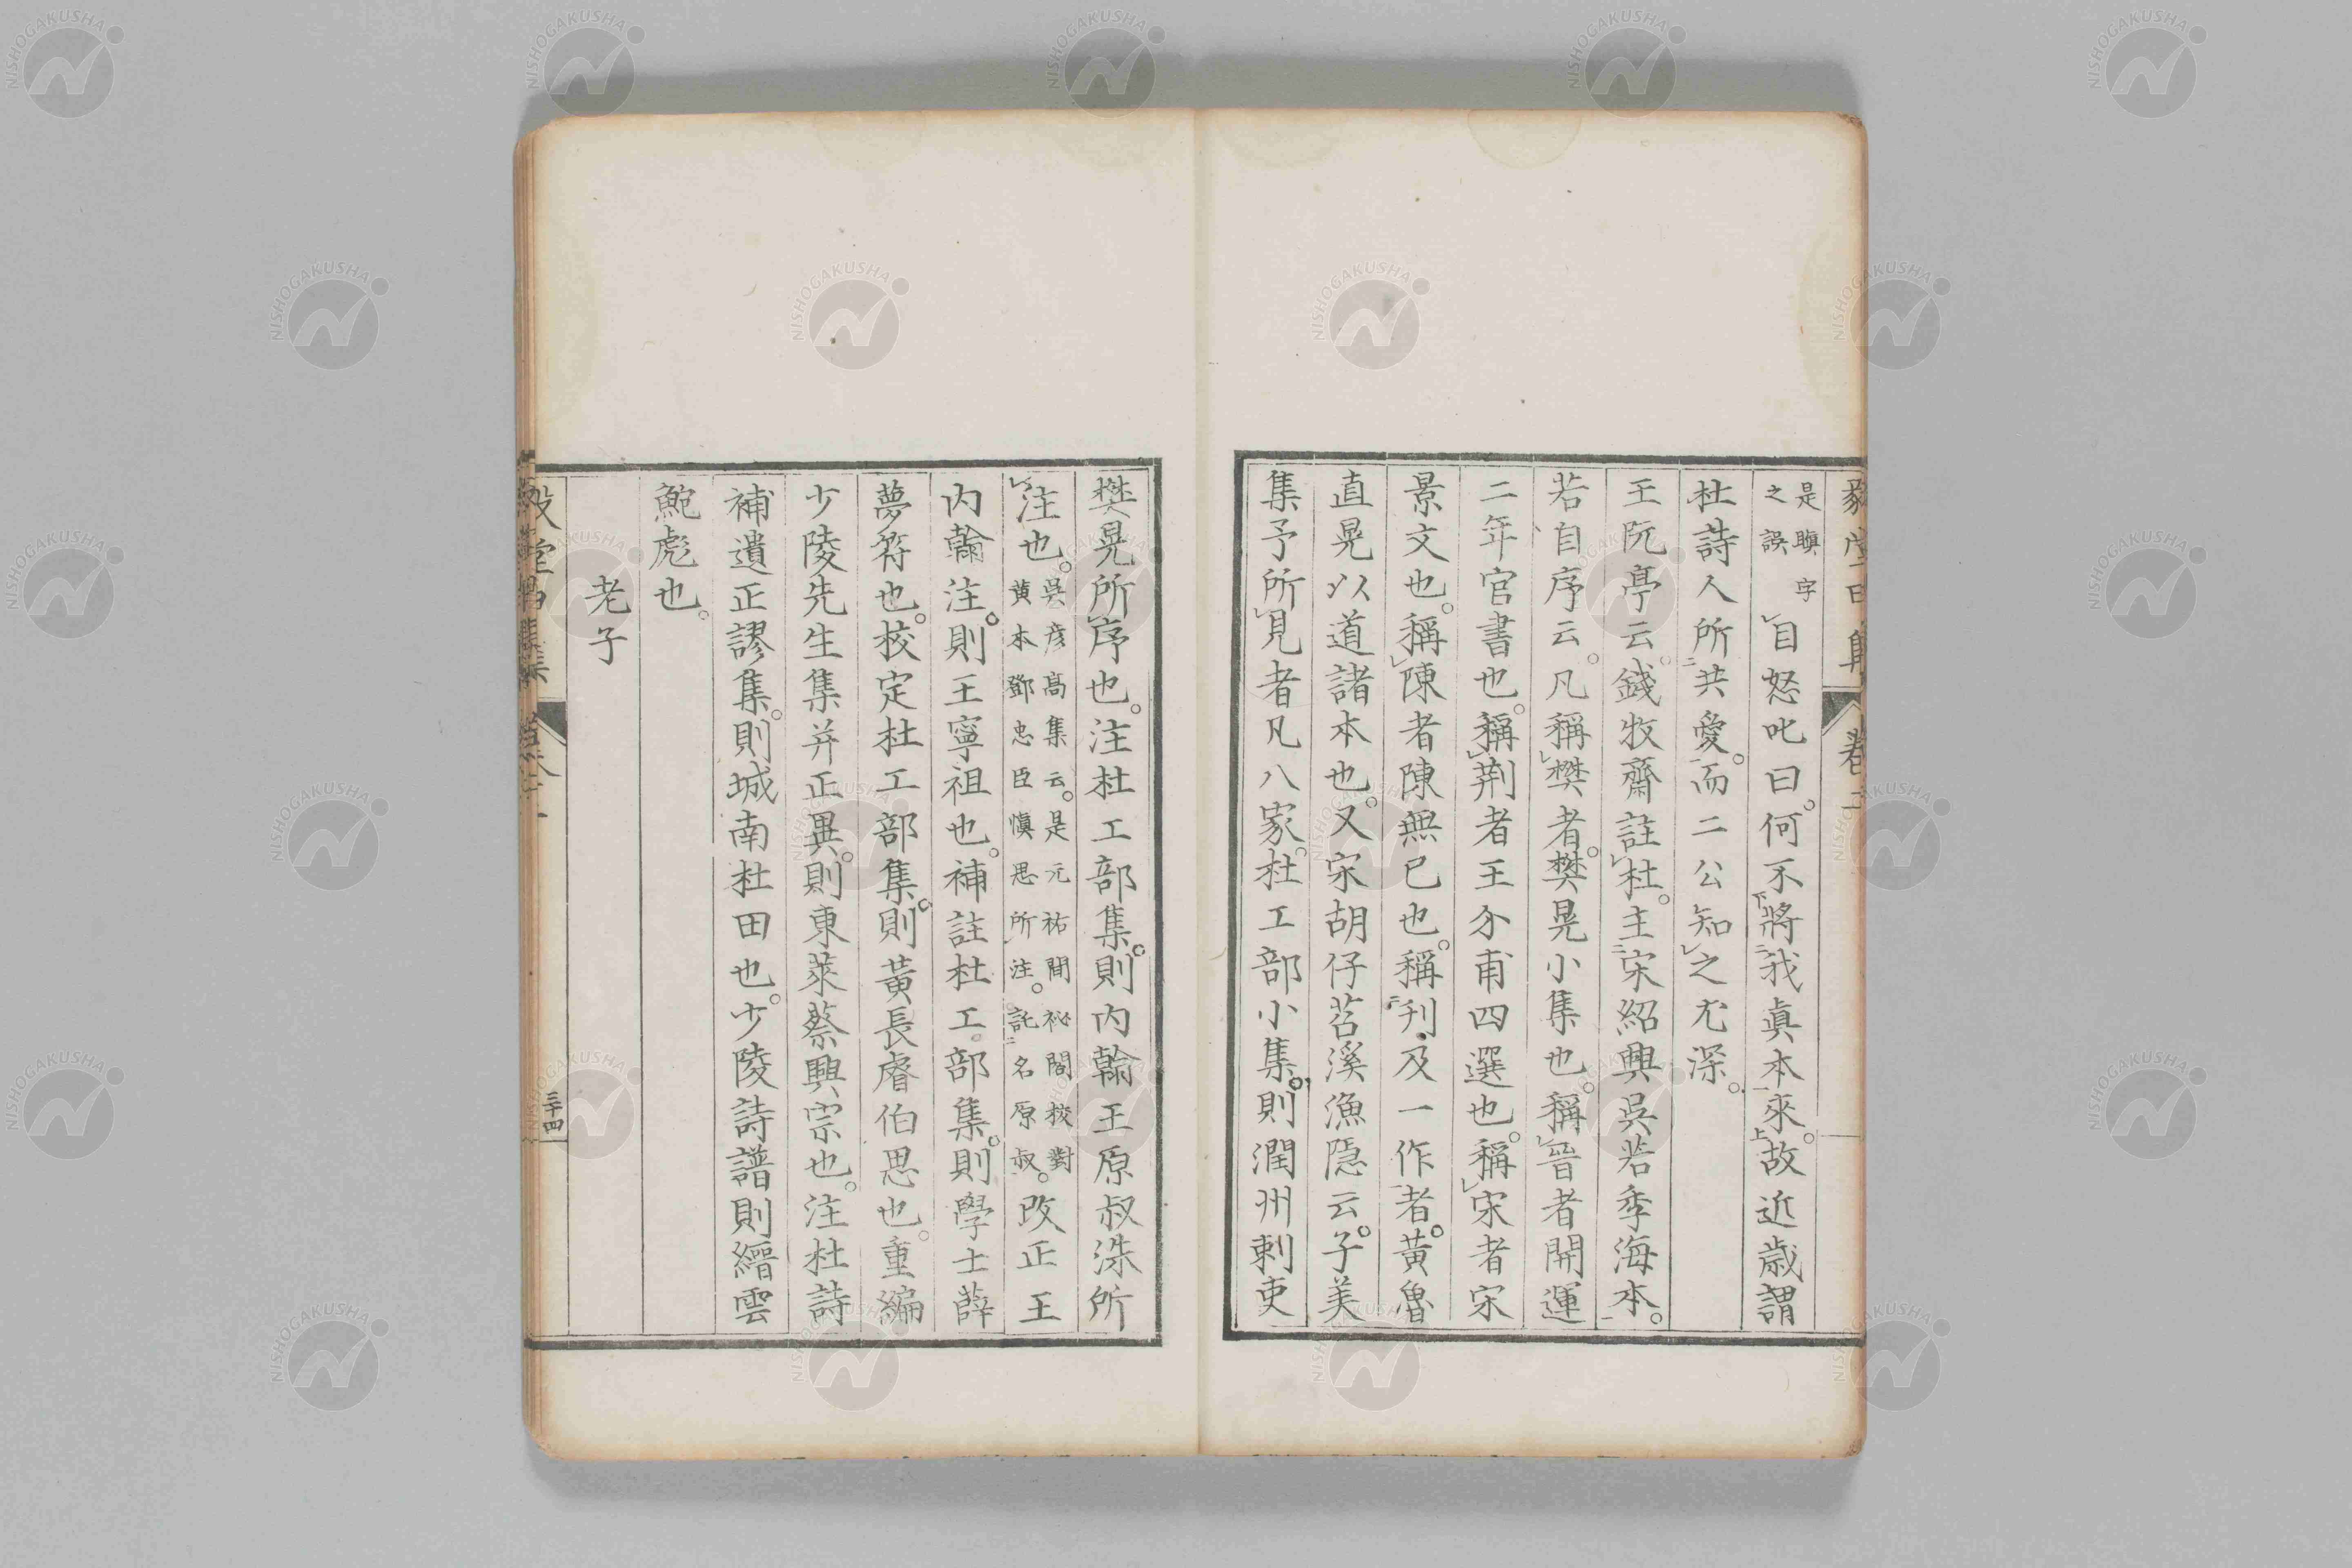 是聯字
之誤
自怒叱曰。何不將我眞本來。故近歲謂
杜詩人所共愛。而二公知之尤深。
王阮亭云。錢牧齋註杜。主宋紹興吳若季海本。
若自序云。凡稱樊者。樊晃小集也。稱晉者開運
二年官書也。稱荆者王介甫四選也。稱宋者宋
景文也。稱陳者陳無已也。稱刋及一作者。黃魯
直晁以道諸本也。又宋胡仔苕溪漁隱云。子美
集予所見者凡八家。杜工部小集。則潤州刺吏
樊晃所序也。注杜工部集。則内翰王原叔洙所
注也。
吳彦高集云。是元祐間祕閣校對
黄本鄧忠臣愼思所注。託名原叔。
改正王
内翰注。則王寧祖也。補註杜工部集。則學士薛
夢符也。校定杜工部集。則黃長睿伯思也。重編
少陵先生集并正異。則東萊蔡興宗也。注杜詩
補遺正謬集。則城南杜田也。少陵詩譜則縉雲
鮑彪也。
老子
三十四
NISHOGAKUSHA